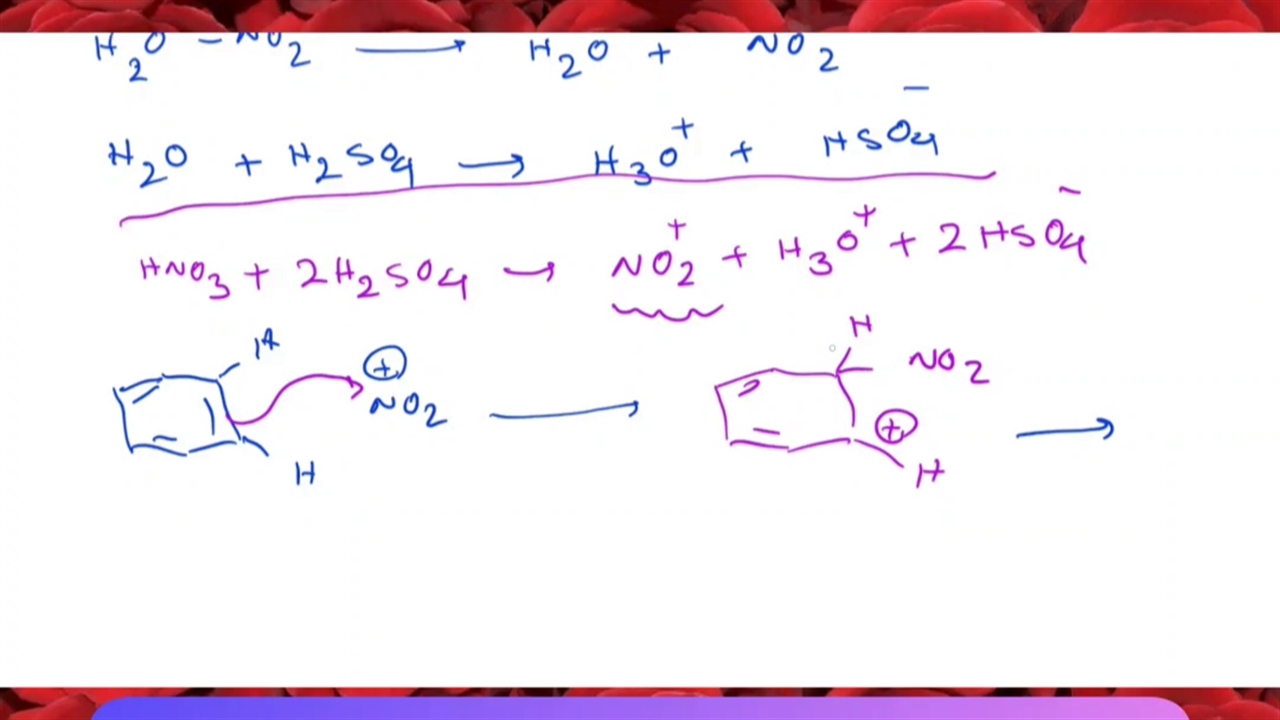 H₂O – NO₂ ⟶ H₂O + NO₂
H₂O + H₂SO₄ ⟶ H₃O⁺ + HSO₄⁻
HNO₃ + 2H₂SO₄ → NO₂⁺ + H₃O⁺ + 2HSO₄⁻
H ⊕ H
NO₂ ⟶ NO₂ ⊕ ⟶
H H